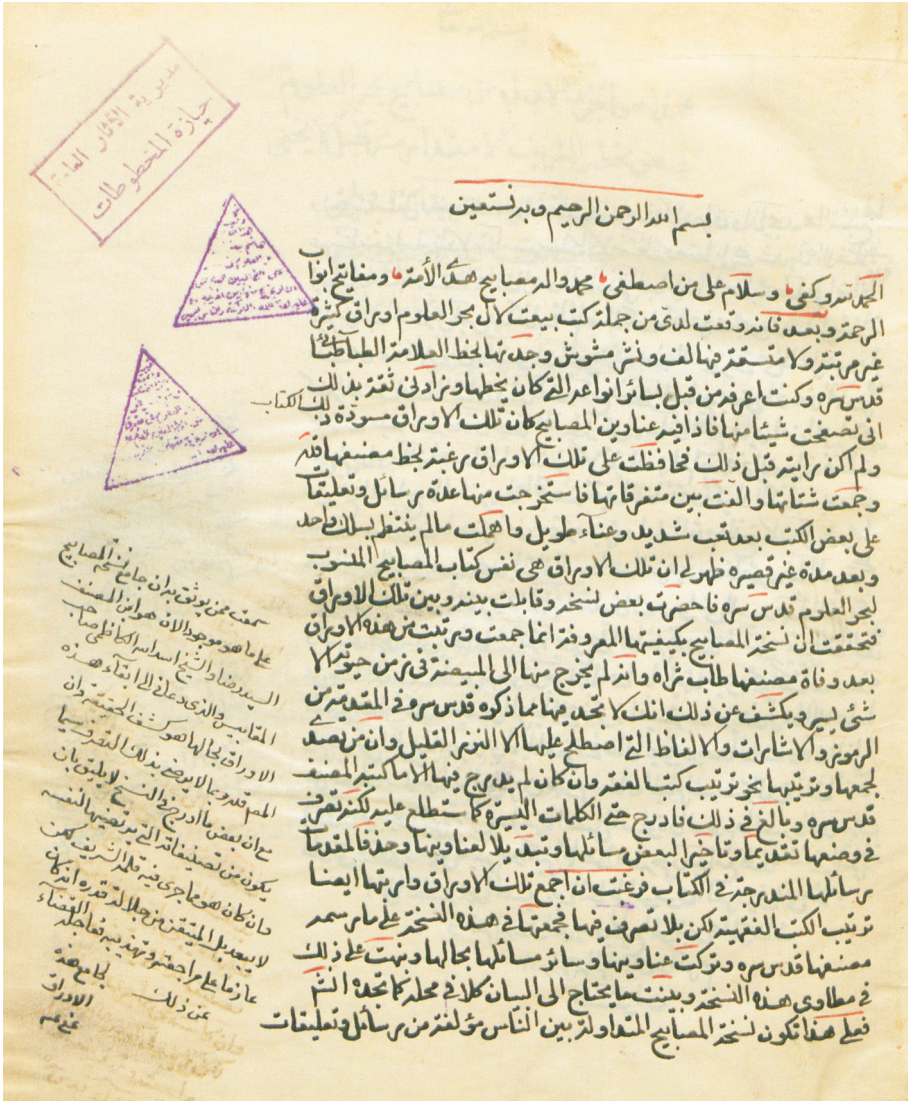 مديرية الآثار العامة
حيازة المخطوطات
بسم الله الرحمن الرحيم وبه نستعين
الحمد لله وكفى وسلام على من اصطفى محمد واله مصابيح هذه الأمة ومفاتيح ابواب
الرحمة وبعد فانه وقعت لدى من جملة كتب بيعت لآل بحر العلوم اوراق كثيرة
غير مرتبة ولا متسقة فيها لف ونشر مشوش وجدتها بخط العلامة الطباطبائى
قدس سره وكنت اعرفه من قبل بسائر انواعه التى كان يخطها وزادنى ثقة بذلك
انى تصفحت شيئا منها فاذا فيه عناوين المصابيح كان تلك الاوراق مسودة ذلك الكتاب
ولم اكن رايته قبل ذلك فحافظت على تلك الاوراق رغبة لخط مصنفها قده
وجمعت شتاتها والفت بين متفرقاتها فاستخرجت منها عدة رسائل وتعليقات
على بعض الكتب بعد تعب شديد وعناء طويل واهملت مالم ينتظم بسلك واحد
وبعد مدة غير قصيرة ظهر لى ان تلك الاوراق هى نفس كتاب المصابيح المنسوب
لبحر العلوم قدس سره فاحضرت بعض نسخه وقابلت بينه وبين تلك الاوراق
فتحققت ان نسخة المصابيح بكيفيتها المعروفة انما جمعت ورتبت من هذه الاوراق
بعد وفاة مصنفها طاب ثراه وانه لم يخرج منها الى المبيضة فى زمن حيوته الا
شئ يسير ويكشف عن ذلك انك لا تجد فيها مما ذكره قدس سره فى المقدمة من
الرموز والاشارات والالفاظ التى اصطلح عليها الا النزر القليل وان من تصدى
لجمعها وترتيبها بنحو ترتيب كتب الفقه وان كان لم يدرج فيها الا ما كتبه المصنف
قدس سره وبالغ فى ذلك فادرج حتى الكلمات اليسيرة كما ستطلع عليه لكنه تصرف
فى وضعها تقديما وتاخيرا لبعض مسائلها وتبديلا لعناوينها وحذفا لمقدمات
رسائلها المندرجة فى الكتاب فرغبت ان اجمع تلك الاوراق وارتبها ايضا
ترتيب الكتب الفقهية لكن بلا تصرف فيها فجمعتها فى هذه النسخة على ما رسمه
مصنفها قدس سره وتركت عناوينها وسائر مسائلها بحالها ونبهت على ذلك
فى مطاوى هذه النسخة وبينت ما يحتاج الى البيان كلا فى محله كما تجده انشم
فعلى هذا تكون نسخة المصابيح المتداولة بين الناس مؤلفة من رسائل وتعليقات
سمعت ممن يوثق به ان جامع نسخ المصابيح
على ما هو موجود الان هو ابن المصنف
السيد رضا والشيخ اسد الله الكاظمى صاحب
المقابيس والذى دعانى الى ابقاء هذه
الاوراق بحالها هو كشف الحقيقة وان
المصـ قده ربما لا يرضى بذلك التصرف سيما
مع ان بعض ما ادرج فى النسخ لا يليق بان
يكون من تصنيفاته التى يرتضيها لنفسه
وان كان هو مما جرى فيه قلمه الشريف لكن
لا يبعد بل المتيقن من جلالة قدره انه كان
عازما على مراجعته وتهذيبه فعاجله القضاء
عن ذلك
لجامع هذه
الاوراق
عفى عنه